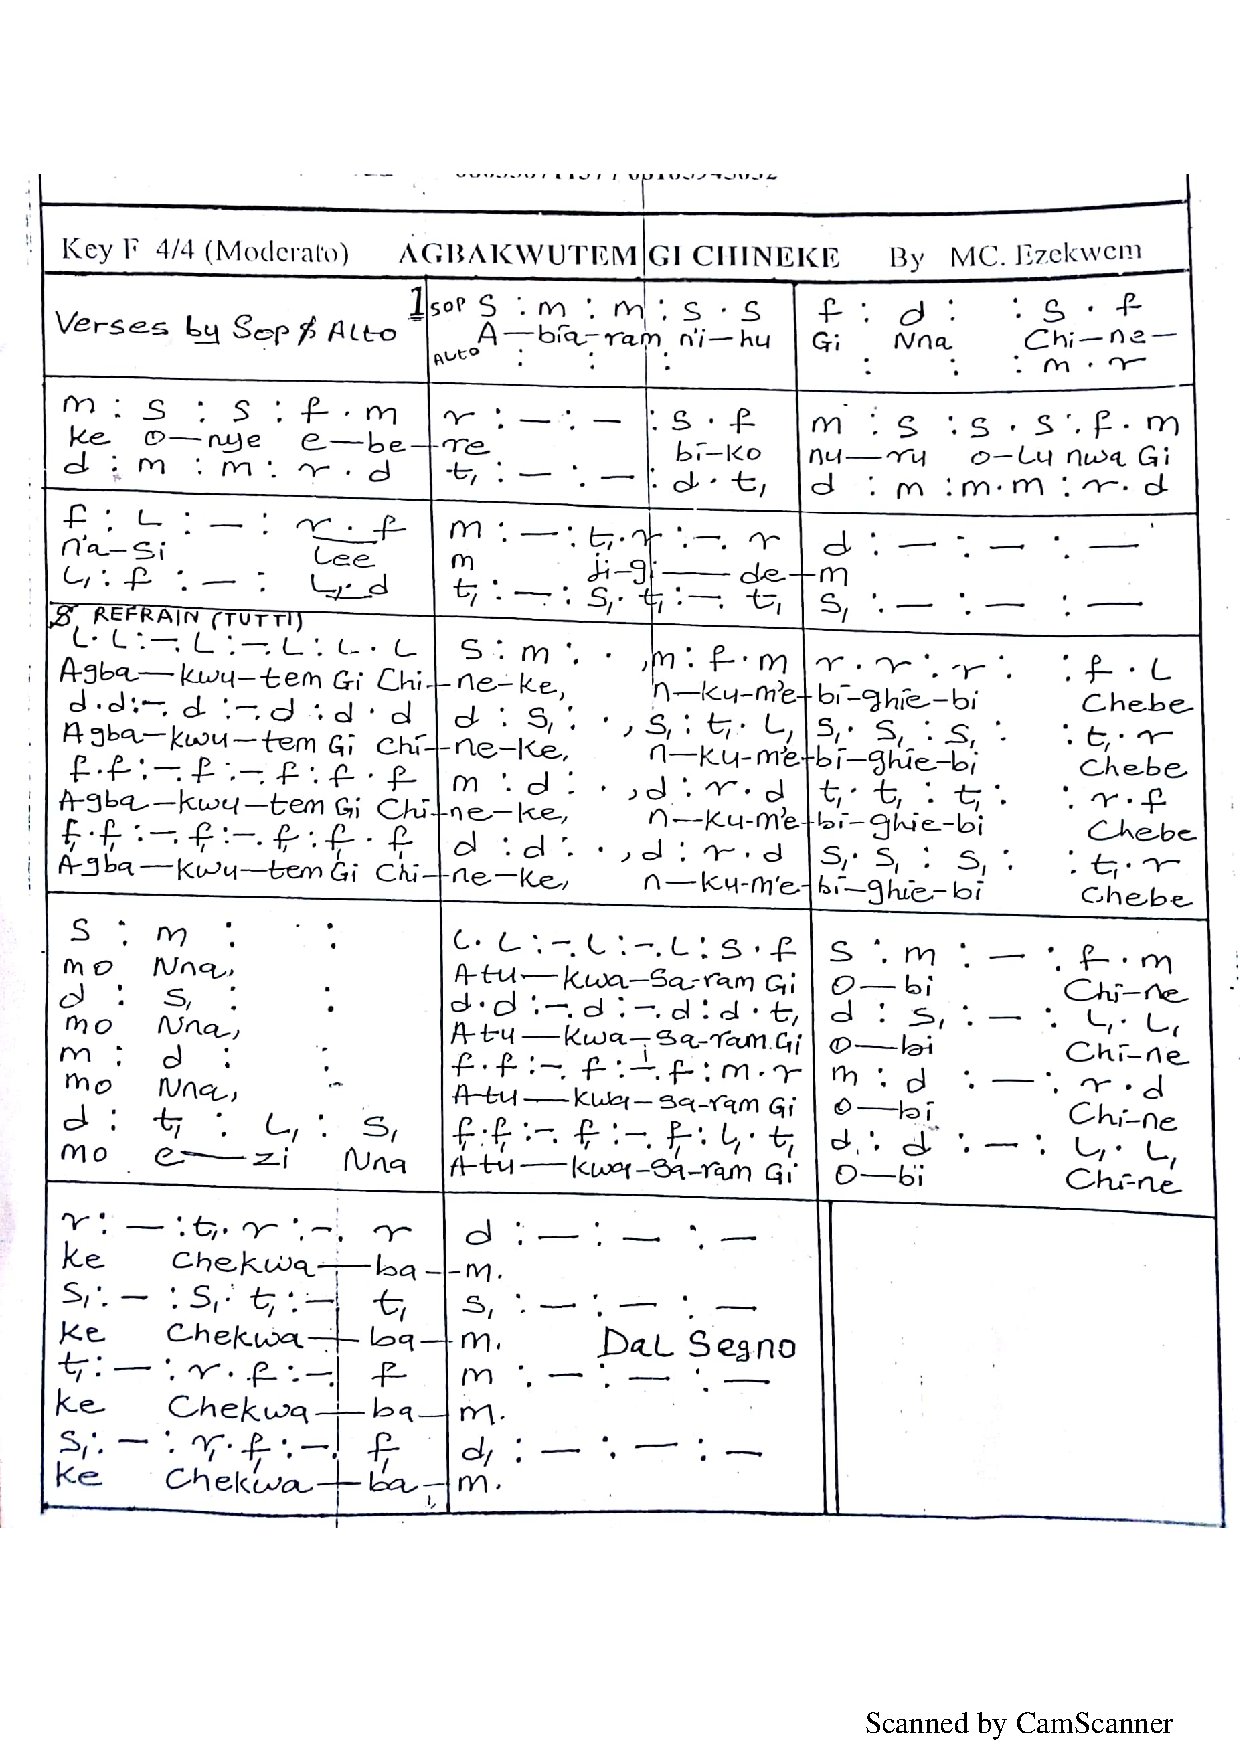 Key F 4/4 (Moderato) AGBAKWUTEM GI CHINEKE By MC. Ezekwem
Verses by Sop & Alto
1 SOP s : m : m : s . s
A—bia-ram n'i-hu
ALTO : : :
f : d : : s . f
Gi Nna Chi-ne-
: : : m . r
m : s : s : f . m
ke o-nye e-be-
d : m : m : r . d
r : — : — : s . f
re bi-ko
t, : — : — : d . t,
m : s : s . s : f . m
nu—ru o-lu nwa Gi
d : m : m . m : r . d
f : L : — : r . f
n'a-si Lee
L, : f : — : L, . d
m : — : t, . r : — . r
m ji-gi—de-
t, : — : s, . t, : — . t,
d : — : — : —
m
s, : — : — : —
REFRAIN (TUTTI)
L . L : — . L : — . L : L . L
Agba—kwu-tem Gi Chi-
d . d : — . d : — . d : d . d
Agba—kwu-tem Gi Chi-
f . f : — . f : — . f : f . f
Agba—kwu-tem Gi Chi-
f, . f, : — . f, : — . f, : f, . f,
Agba—kwu-tem Gi Chi-
s : m : . , m : f . m
ne-ke, n-ku-m'e-
d : s, : . , s, : t, . L,
ne-ke, n-ku-m'e-
m : d : . , d : r . d
ne-ke, n-ku-m'e-
d : d : . , d : r . d
ne-ke, n-ku-m'e-
r . r : r : : f . L
bi-ghie-bi Chebe
s, . s, : s, : : t, . r
bi-ghie-bi Chebe
t, . t, : t, : : r . f
bi-ghie-bi Chebe
s, . s, : s, : : t, . r
bi-ghie-bi Chebe
s : m : :
mo Nna,
d : s, : :
mo Nna,
m : d : :
mo Nna,
d : t, : L, : s,
mo e—zi Nna
L . L : — . L : — . L : s . f
A-tu—kwa-sa-ram Gi
d . d : — . d : — . d : d . t,
A-tu—kwa-sa-ram Gi
f . f : — . f : — . f : m . r
A-tu—kwa-sa-ram Gi
f, . f, : — . f, : — . f, : L, . t,
A-tu—kwa-sa-ram Gi
s : m : — : f . m
o-bi Chi-ne
d : s, : — : L, . L,
o-bi Chi-ne
m : d : — : r . d
o-bi Chi-ne
d : d : — : L, . L,
o-bi Chi-ne
r : — : t, . r : — . r
ke Chekwa—ba-
s, : — : s, . t, : — . t,
ke Chekwa—ba-
t, : — : r . f : — . f
ke Chekwa—ba-
s, : — : r, . f, : — . f,
ke Chekwa—ba-
d : — : — : —
m.
s, : — : — : —
m. Dal Segno
m : — : — : —
m.
d, : — : — : —
m.
Scanned by CamScanner